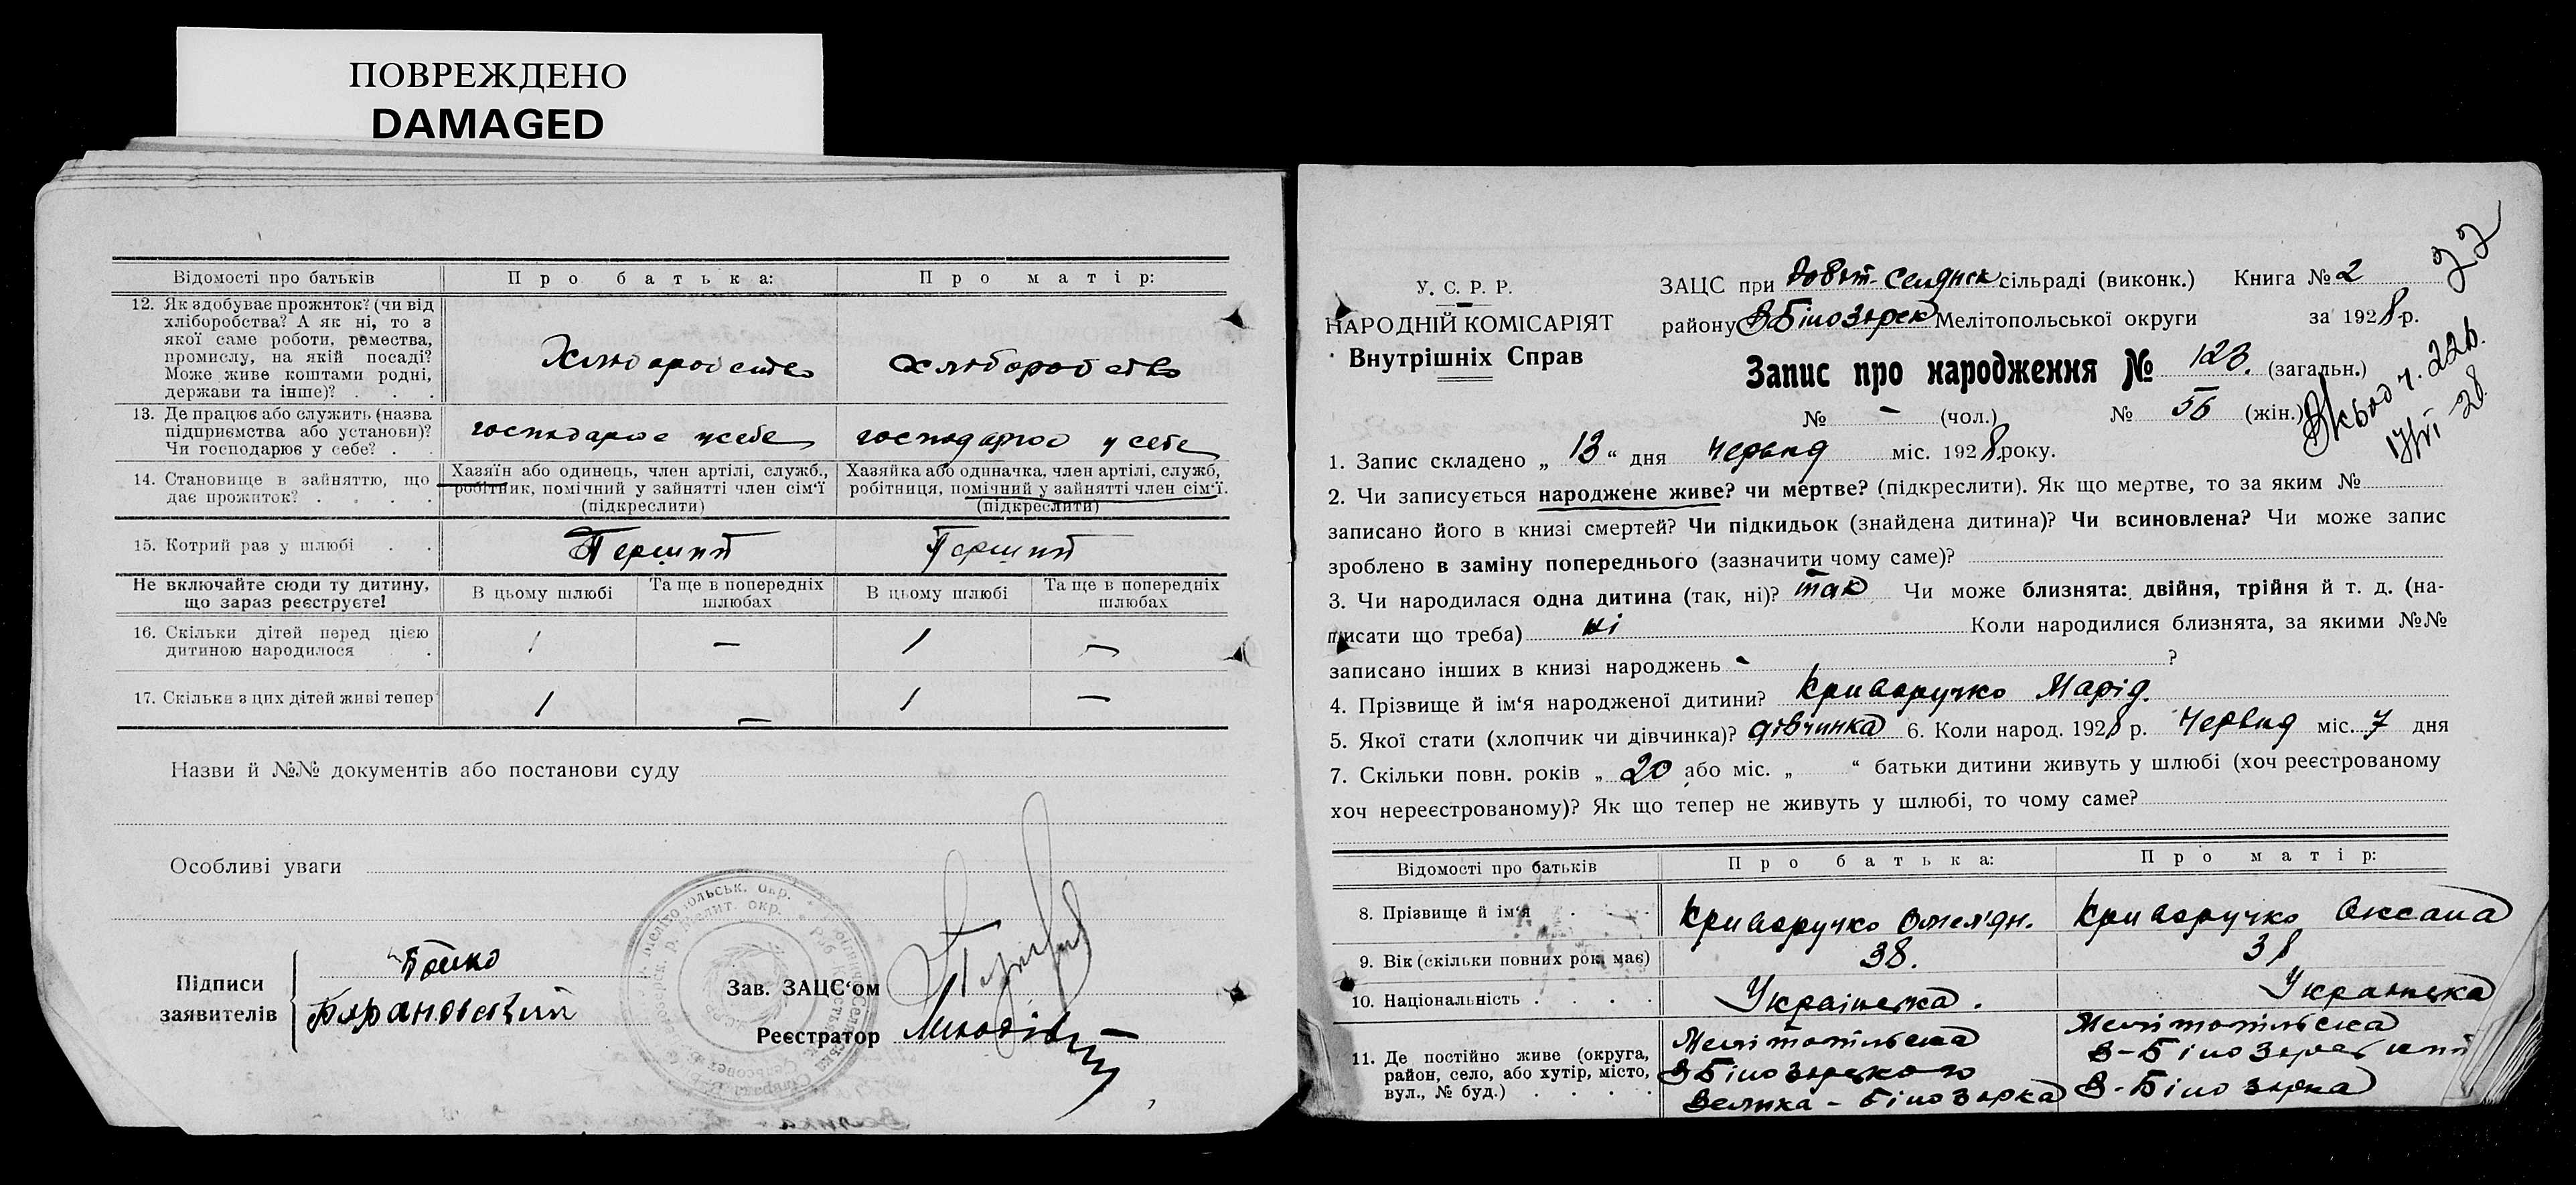 ПОВРЕЖДЕНО
DAMAGED
Відомості про батьків
Про батька:
Про матір:
12. Як здобуває прожиток? (чи від
хліборобства? А як ні, то з
якої саме роботи, ремества,
промислу, на якій посаді?
Може живе коштами родні,
держави та інше)? . . .
Хліборобство
Хліборобство
13. Де працює або служить (назва
підприємства або установи)?
Чи господарює у себе? . .
господарює у себе
господарює у себе
14. Становище в зайняттю, що
дає прожиток? . . . .
Хазяїн або одинець, член артілі, служб.,
робітник, помічний у зайнятті член сім'ї
(підкреслити)
Хазяйка або одиначка, член артілі, служб,
робітниця, помічний у зайнятті член сім'ї.
(підкреслити)
15. Котрий раз у шлюбі . .
Перший
Перший
Не включайте сюди ту дитину,
що зараз реєструєте!
В цьому шлюбі
Та ще в попередніх
шлюбах
В цьому шлюбі
Та ще в попередніх
шлюбах
16. Скільки дітей перед цією
дитиною народилося .
1 — 1 —
17. Скільки з цих дітей живі тепер
1 — 1 —
Назви й №№ документів або постанови суду
Особливі уваги
Підписи
заявителів
Бойко
Барановский
Зав. ЗАЦС'ом
Реєстратор
У. С. Р. Р.
НАРОДНІЙ КОМІСАРІЯТ
Внутрішніх Справ
ЗАЦС при сільраді (виконк.) Книга № 2
22
району В Білозерск Мелітопольської округи за 1928 р.
Запис про народження № 123. (загальн.)
№ - (чол.) № 56 (жін.)
1. Запис складено „ 13 “ дня Червня міс. 1928 року.
2. Чи записується народжене живе? чи мертве? (підкреслити). Як що мертве, то за яким №
записано його в книзі смертей? Чи підкидьок (знайдена дитина)? Чи всиновлена? Чи може запис
зроблено в заміну попереднього (зазначити чому саме)?
3. Чи народилася одна дитина (так, ні)? так Чи може близнята: двійня, трійня й т. д. (на-
писати що треба) ні Коли народилися близнята, за якими №№
записано інших в книзі народжень - ?
4. Прізвище й ім'я народженої дитини? Криворучко Марія.
5. Якої стати (хлопчик чи дівчинка)? дівчинка 6. Коли народ. 1928 р. Червня міс. 7 дня
7. Скільки повн. років „ 20 або міс. „ “ батьки дитини живуть у шлюбі (хоч реєстрованому
хоч нереєстрованому)? Як що тепер не живуть у шлюбі, то чому саме?
Відомості про батьків
Про батька:
Про матір:
8. Прізвище й ім'я . . .
Криворучко Омелян.
Криворучко Оксана
9. Вік (скільки повних рок. має)
38.
38
10. Національність . . . .
Українська.
Українська
11. Де постійно живе (округа,
район, село, або хутір, місто,
вул., № буд.) . . . .
Мелітопільска
В Білозерского
Велика - Білозерка
Мелітопільска
В-Білозерський
В-Білозерка